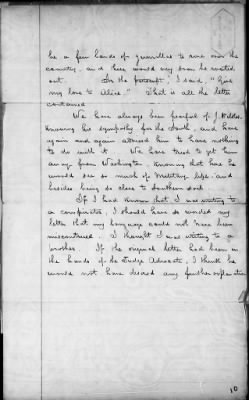 be a few bands of guerrillas to rove over the
country, and they would very soon be wiped
out. In the postscript, I said, "Give
my love to Alice." That is all the letter
contained.
We have always been fearful of J. Wilkes,
knowing his sympathy for the South, and have
again and again advised him to have nothing
to do with it. We have tried to get him
away from Washington, knowing that here he
would see so much of military life, and
besides being so close to Southern soil.
If I had known that I was writing to
a conspirator, I should have so worded my
letter that my language could not have been
misconstrued. I thought I was writing to a
brother. If the original letter had been in
the hands of the Judge Advocate, I think he
would not have desired any further explanation
10